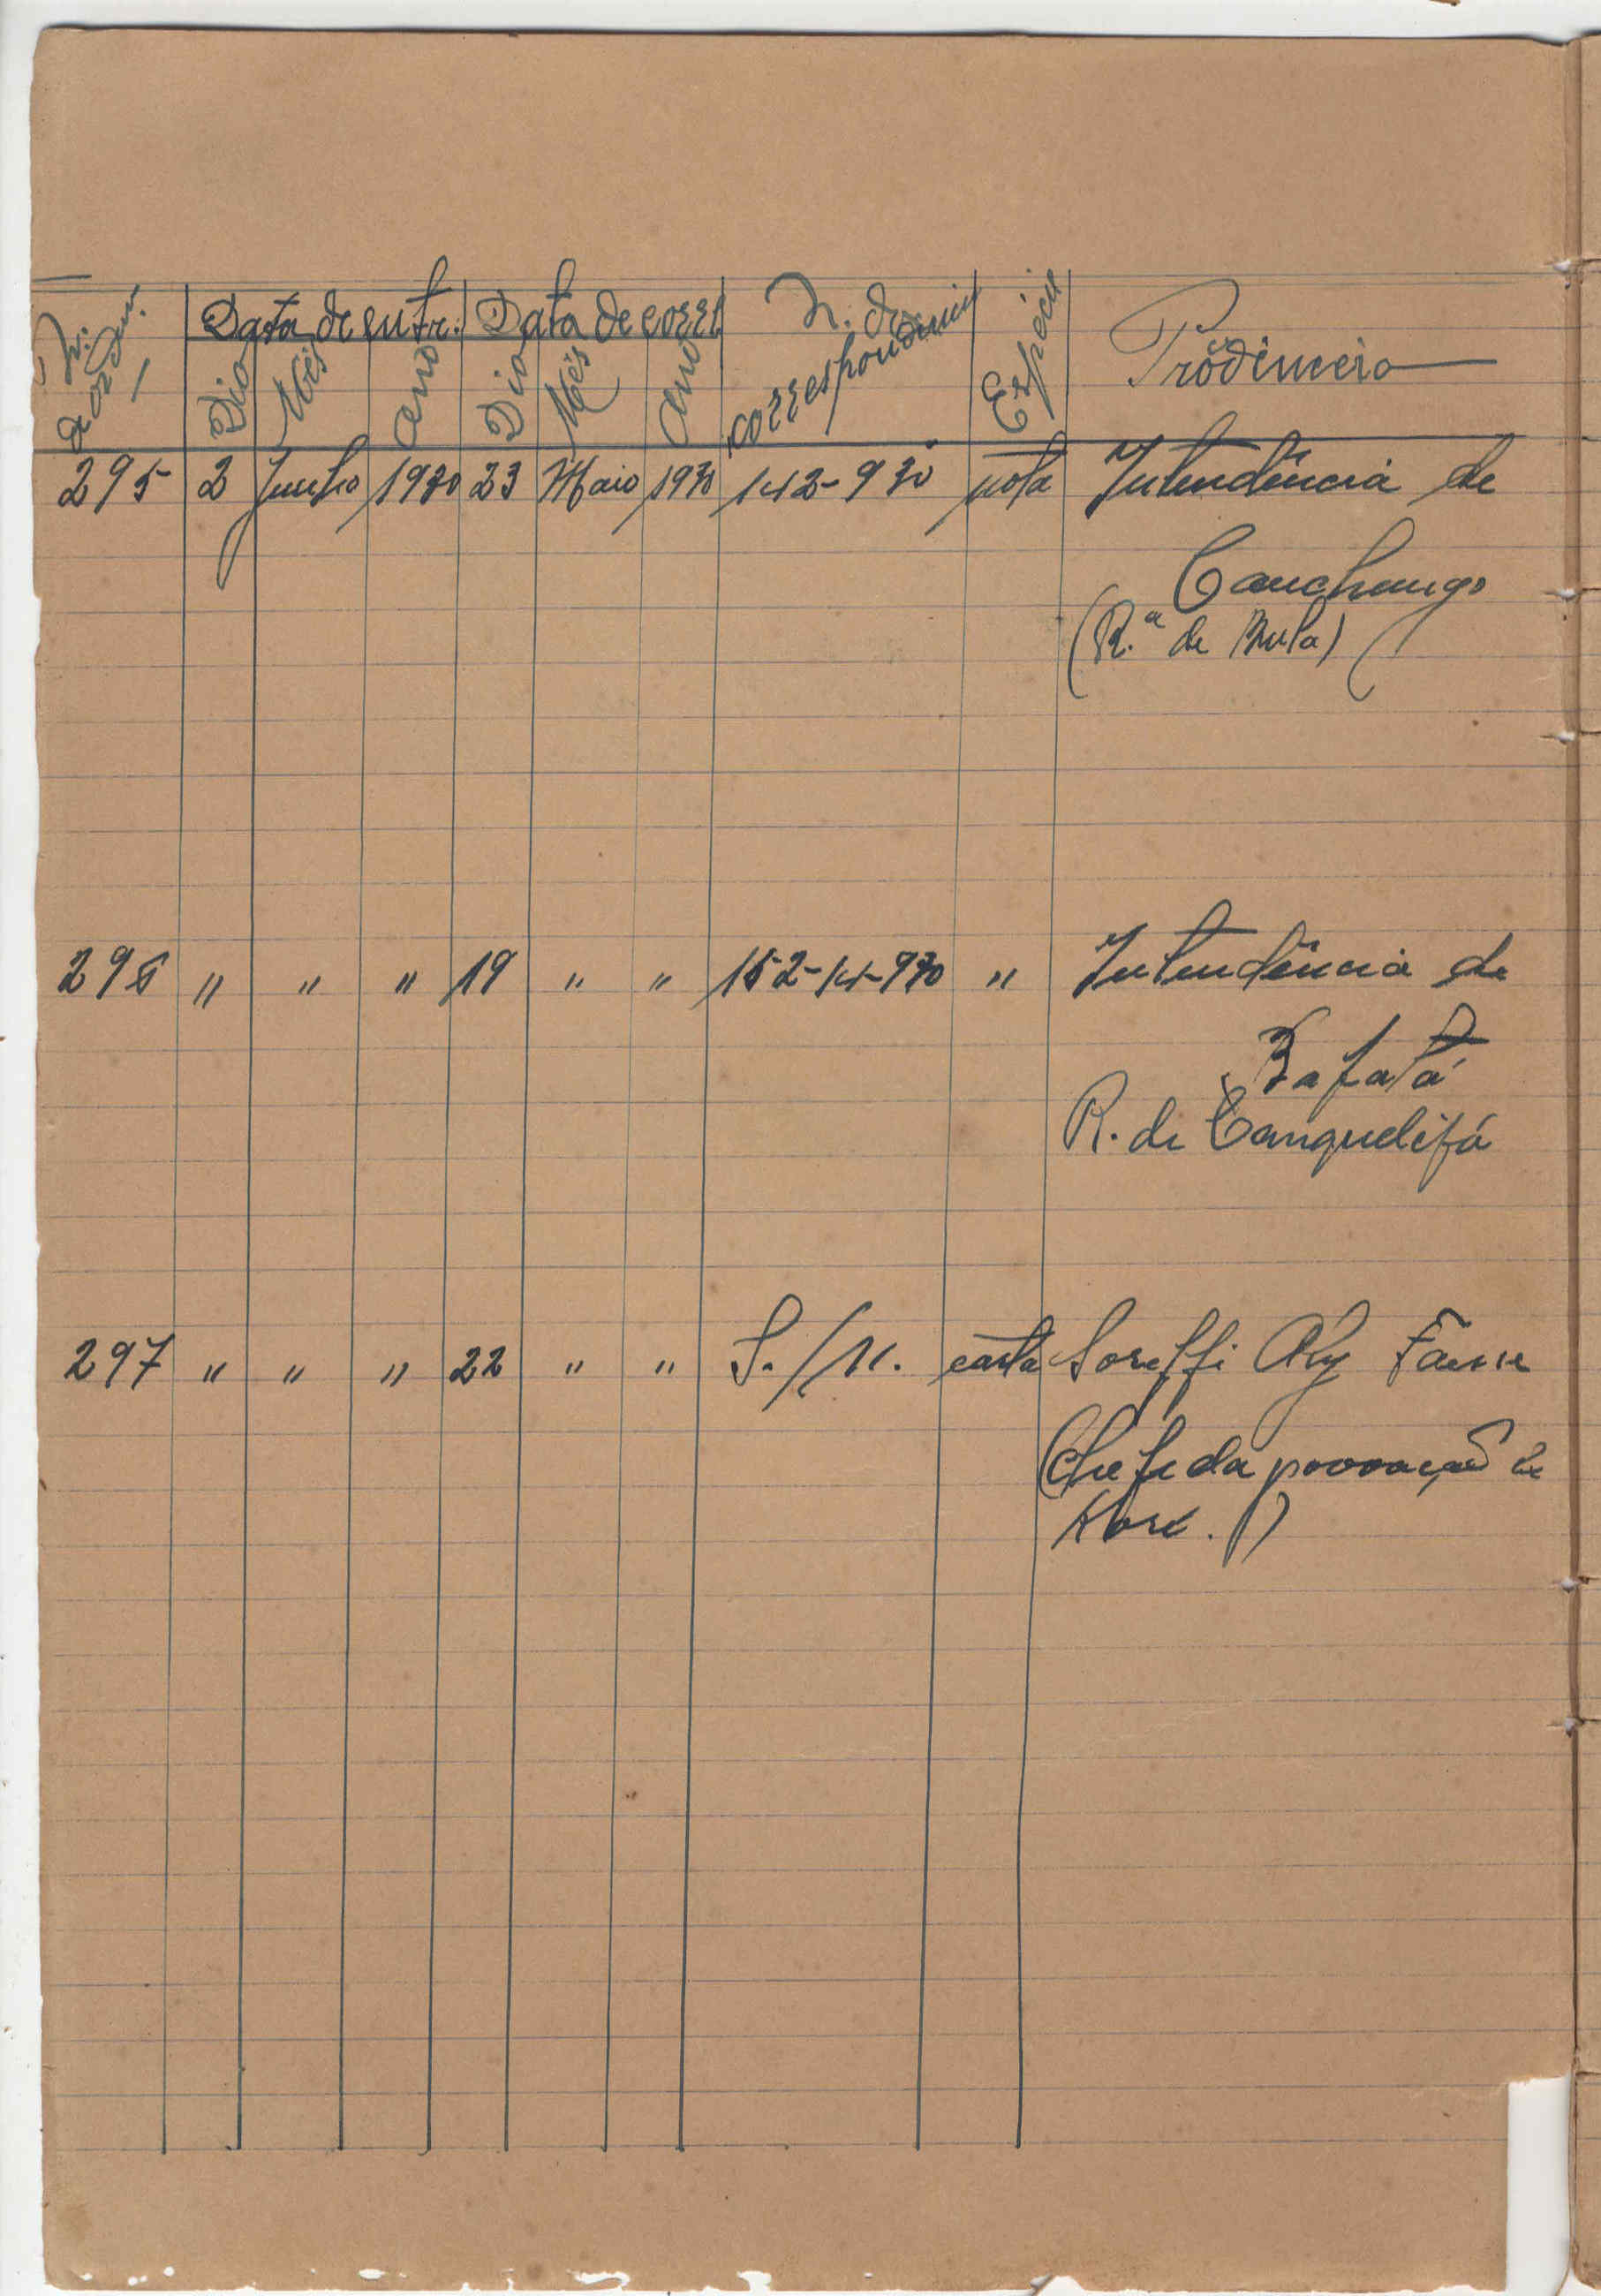 N. de ordem Data de entr. Data de corr. N. de correspondencia Espécie Prodinceia
Dia Mês Ano Dia Mês Ano
295 2 Junho 1930 23 Maio 1930 142-930 nota Intendência de
Canchungo
(R.ª de Bula)
296 " " " 19 " " 152-14-930 " Intendência de
Bafatá
R. de Canquelifá
297 " " " 22 " " S./N. carta Aly
(Chefe da povoação de